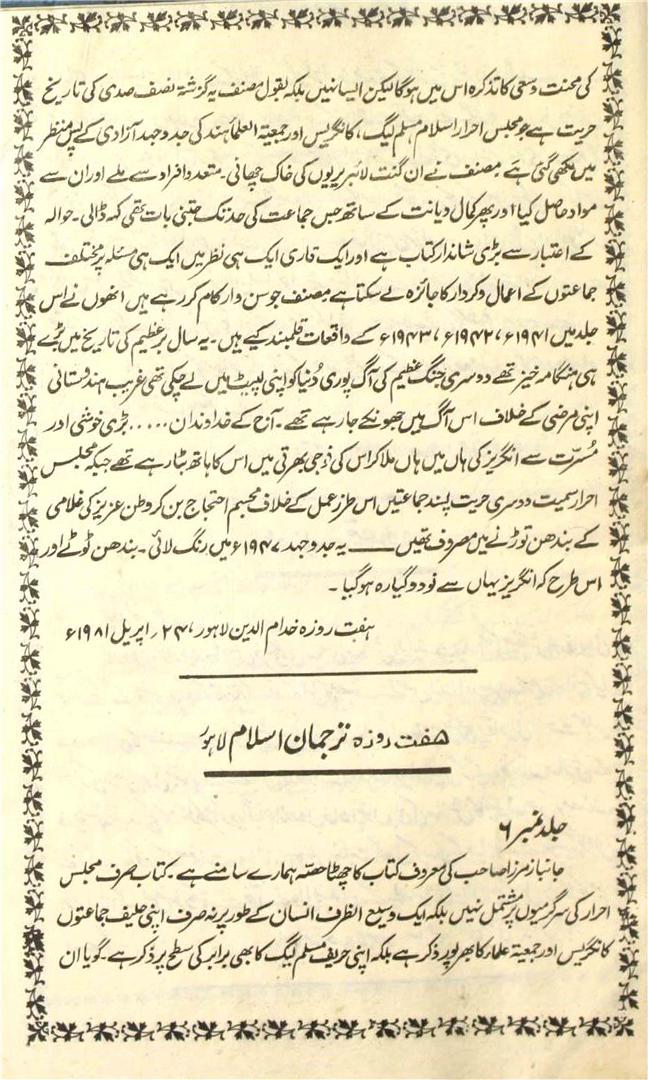 کی محنت وسعی کا تذکرہ اس میں ہوگا لیکن ایسا نہیں بلکہ بقول مصنف یہ گزشتہ نصف صدی کی تاریخ
حریت ہے جو مجلس احرار اسلام، مسلم لیگ، کانگریس اور جمعیۃ العلماٴ ہند کی جدوجہد آزادی کے پس منظر
میں لکھی گئی ہے مصنف نے ان گنت لائبریریوں کی خاک چھانی۔ متعدد افراد سے ملے اور ان سے
مواد حاصل کیا اور پھر کمال دیانت کے ساتھ جس جماعت کی حد تک جتنی بات تھی کہہ ڈالی۔ حوالہ
کے اعتبار سے بڑی شاندار کتاب ہے اور ایک قاری ایک ہی نظر میں ایک ہی مسئلہ پر مختلف
جماعتوں کے اعمال وکردار کا جائزہ لے سکتا ہے مصنف جو سن وار کام کر رہے ہیں انھوں نے اس
جلد میں ۱۹۴۱ء، ۱۹۴۲ء، ۱۹۴۳ء کے واقعات قلمبند کیے ہیں۔ یہ سال برعظیم کی تاریخ میں بڑے
ہی ہنگامہ خیز تھے دوسری جنگ عظیم کی آگ پوری دُنیا کو اپنی لپیٹ میں لے چکی تھی غریب ہندوستانی
اپنی مرضی کے خلاف اس آگ میں جھونکے جا رہے تھے۔ آج کے خداوندان ..... بڑی خوشی اور
مُسرّت سے انگریز کی ہاں میں ہاں ملا کر اس کی فوجی بھرتی میں اس کا ہاتھ بٹا رہے تھے جبکہ مجلس
احرار سمیت دوسری حریت پسند جماعتیں اس طرز عمل کے خلاف مجسم احتجاج بن کر وطن عزیز کی غلامی
کے بندھن توڑنے میں مصروف تھیں ـــــ یہ جدوجہد ۱۹۴۷ء میں رنگ لائی۔ بندھن ٹوٹے اور
اس طرح کہ انگریز یہاں سے نو دو گیارہ ہو گیا۔
ہفت روزہ خدام الدین لاہور، ۲۴؍ اپریل ۱۹۸۱ء
ھفت روزہ ترجمان اسلام لاہور
جلد نمبر ۶
جانباز مرزا صاحب کی معروف کتاب کا چھٹا حصّہ ہمارے سامنے ہے۔ کتاب صرف مجلس
احرار کی سرگرمیوں پر مشتمل نہیں بلکہ ایک وسیع الظرف انسان کے طور پر نہ صرف اپنی حلیف جماعتوں
کانگریس اور جمعیۃ علماء کا بھرپور ذکر ہے بلکہ اپنی حریف مسلم لیگ کا بھی برابر کی سطح پر ذکر ہے۔ گویا ان